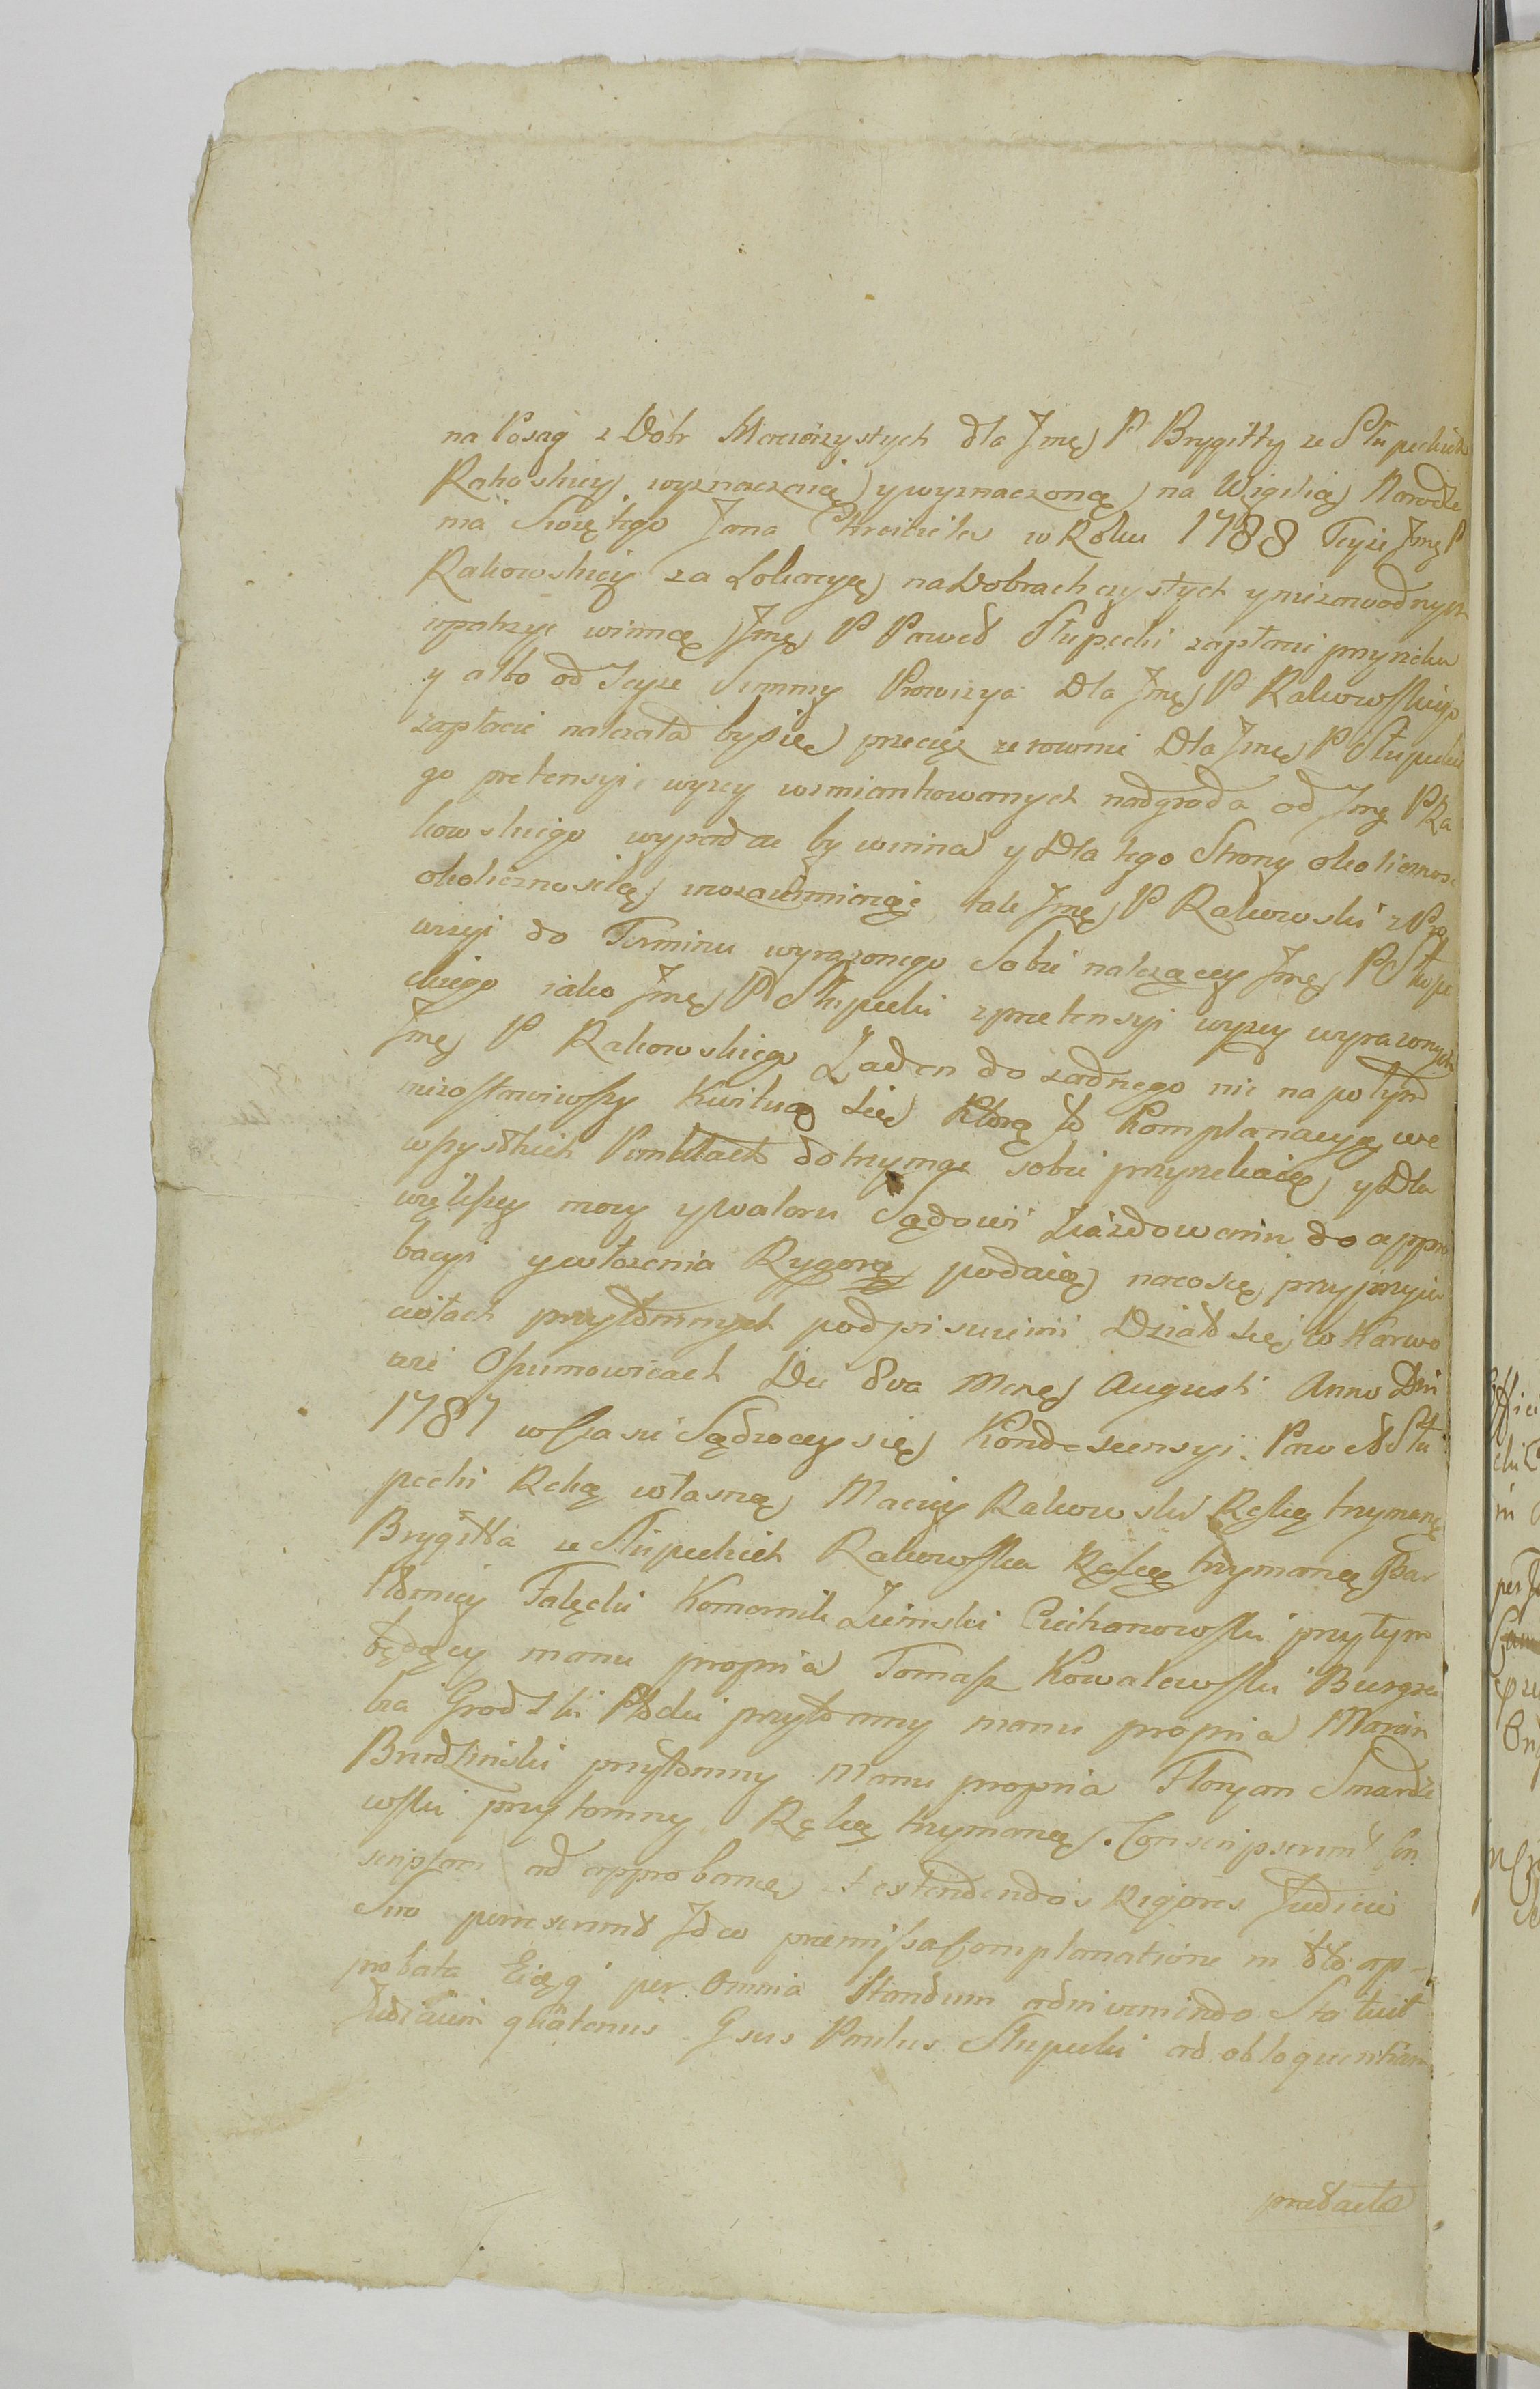 na Posag z Dobr Macierzystych dla Jmę P Brygitty ze Słupeckich
Rakoskiey wyznaczoną na Wigilią Narodze
nia Swiętego Jana Chrciciela w Roku 1788 Teyże Jmę P
Rakowskiey za Lokacyą na Dobrach czystych y niezawodnych
opatrzyc winną Jmę P Paweł Słupecki zapłacic przyrzeka
y albo od Teyze Summy Prowizya dla Jmę P Rakowskiego
zapłacic należałaby się przeciez ze rownie dla Jmę P Słupeckie
go pretensyi wyzey wzmiankowanych nadgroda od Jmę P Ra
kowskiego wypadac by winna y dla tego Strony okolicznosc
okolicznoscią tak Jmę P Rakowski z Pro
wizyi do Terminu wyrazonego Sobie nalezącey Jmę P Słupe
ckiego iako Jmę P Słupecki z praetensyi wyzey wyrazonych
Jmę P Rakowskiego Zaden do zadnego nic na potym
niezostawiwszy Kwituią się Którą to Komplanacyą we
wszystkich Punktach dotrzymac sobie przyrzekaią y dla
więkſzey mocy y waloru Sądowi Ziazdowemu do appro
bacyi y włozenia Rygoru podaią na co się przy przyia
ciołach przytomnych podpisuiemi Działo się w Karwo
sieki Die 8va Mensis Augusti Anno Dni
1787 w czasie Sądzącey się Kondescensyi. Paweł Słu
pecki Ręką własną Maciey Rakowski Ręką trzymaną
Brygitta ze Słupeckich Rakowska Ręką trzymaną Bar
tłomiey Falęcki Komornik Ziemski Ciechanowski przy tym
będący manu propria Tomasz Kowalewski Burgra
bia Grodzki Płocki przytomny manu propria Marcin
Brudziński przytomny manu propria Floryan Smardze
wski przytomny Ręką trzymaną. Conscripserunt Con
scriptam ad approbandum extendendos Rigores Judicii
Suo porrexerunt Id eo praemissa Complanatione in toto ap-
probata Eiq per Omnia Standum adinveniendo Statuit
Judicium quatenus Gsus Paulus Słupecki ad obloquentiam
praetacta